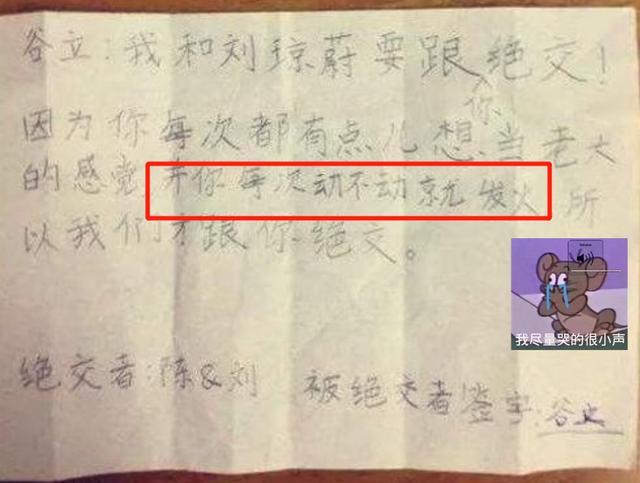 谷立:我和刘琼蔚要跟你绝交!
因为你每次都有点儿想当老大
的感觉,并你每次动不动就发火所
以我们才跟你绝交。
我尽量哭的很小声
绝交者:陈&刘 被绝交者签字:谷立